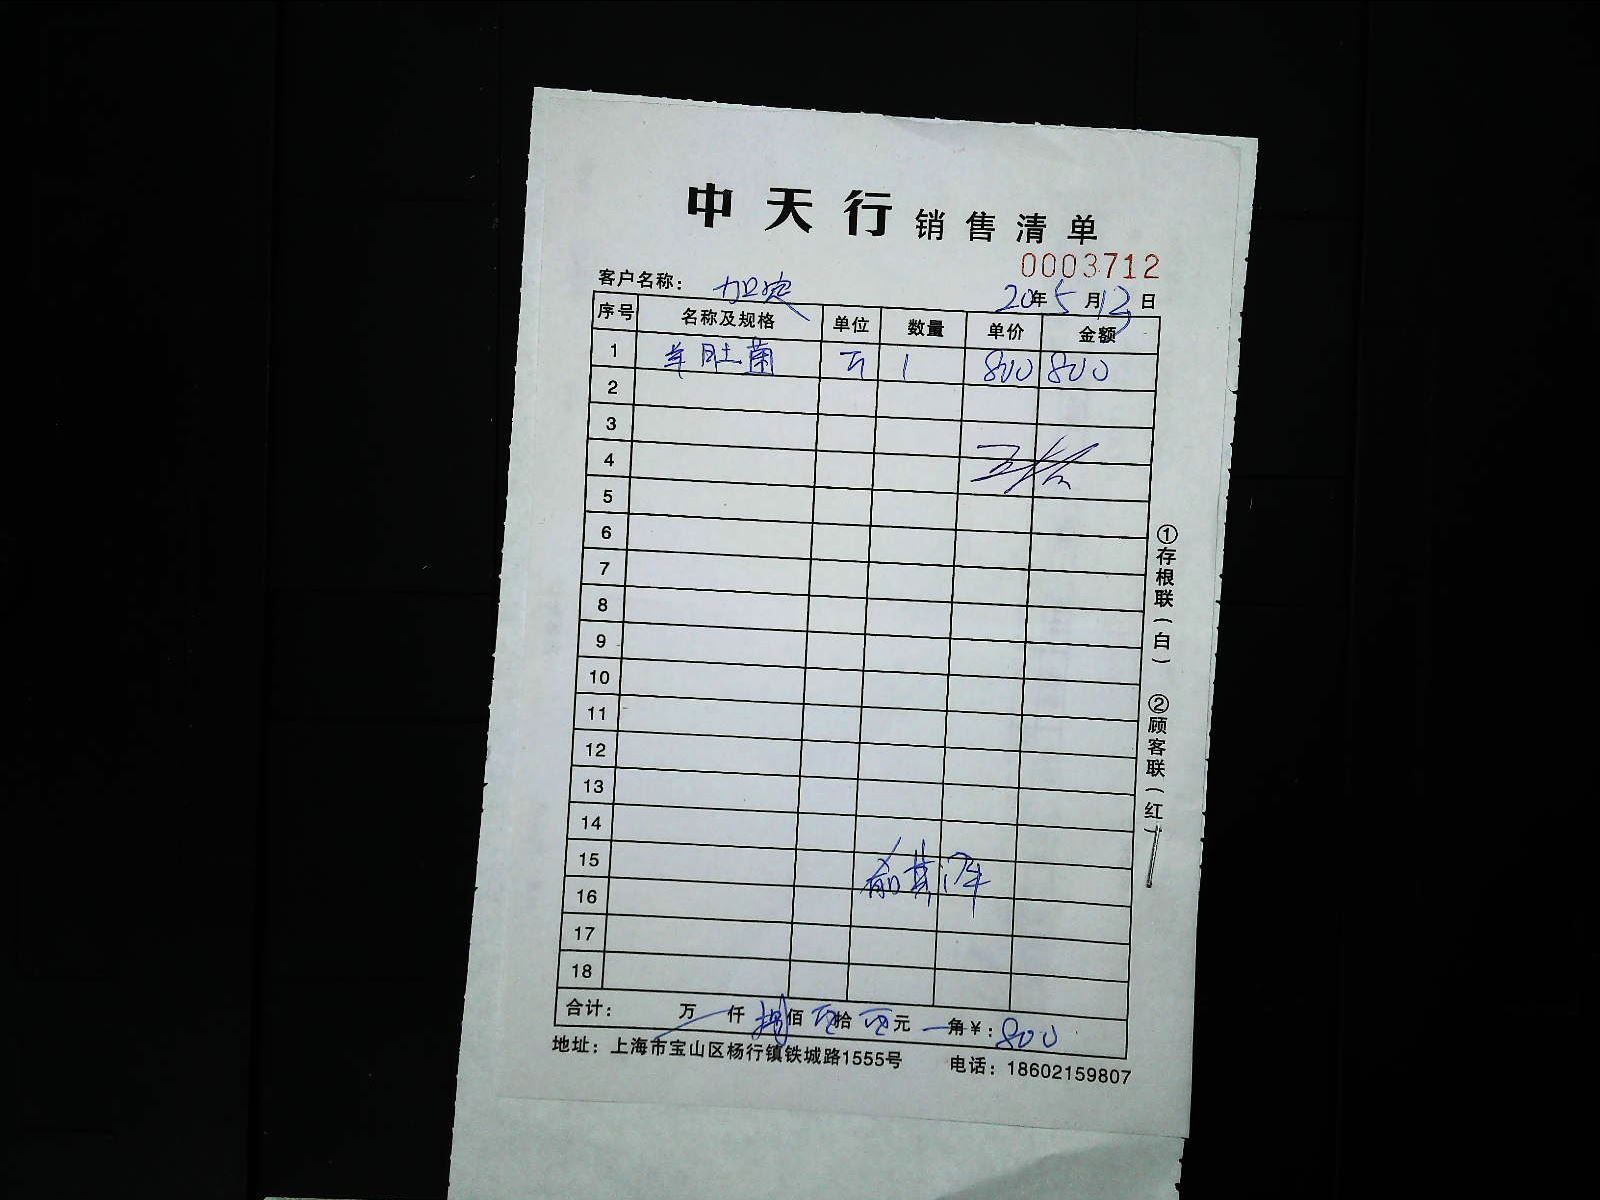 中天行销售清单
0003712
客户名称: 加定
20年5月12日
序号 名称及规格 单位 数量 单价 金额
1 羊肚菌 斤 1 800 800
2
3
4
5
6
7
8
9
10
11
12
13
14
15
16
17
18
合计: 万 仟 捌佰 零拾 零元 角¥: 800
地址: 上海市宝山区杨行镇铁城路1555号 电话: 18602159807
①存根联(白) ②顾客联(红)